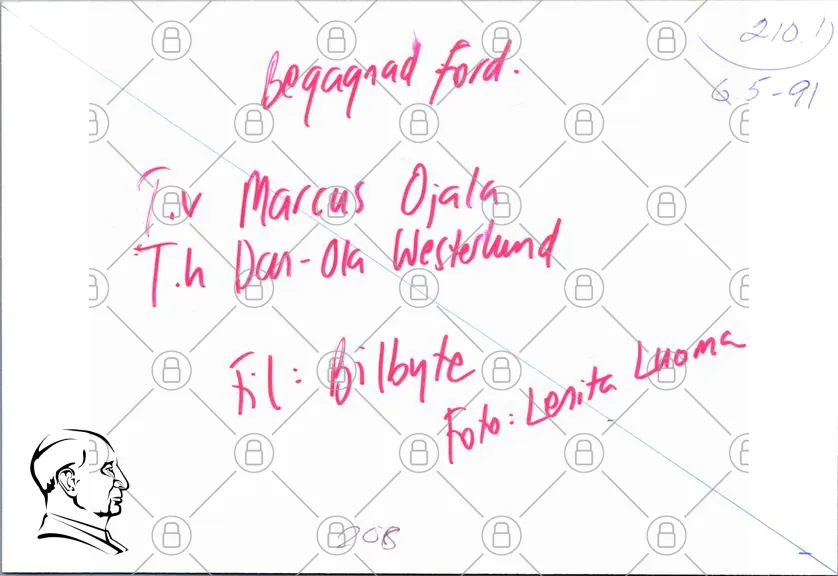 210. 1)
6.5-91
Begagnad Ford.
T.v Marcus Ojala
T.h Dan-Ola Westerlund
Fil: Bilbyte
Foto: Lenita Luoma